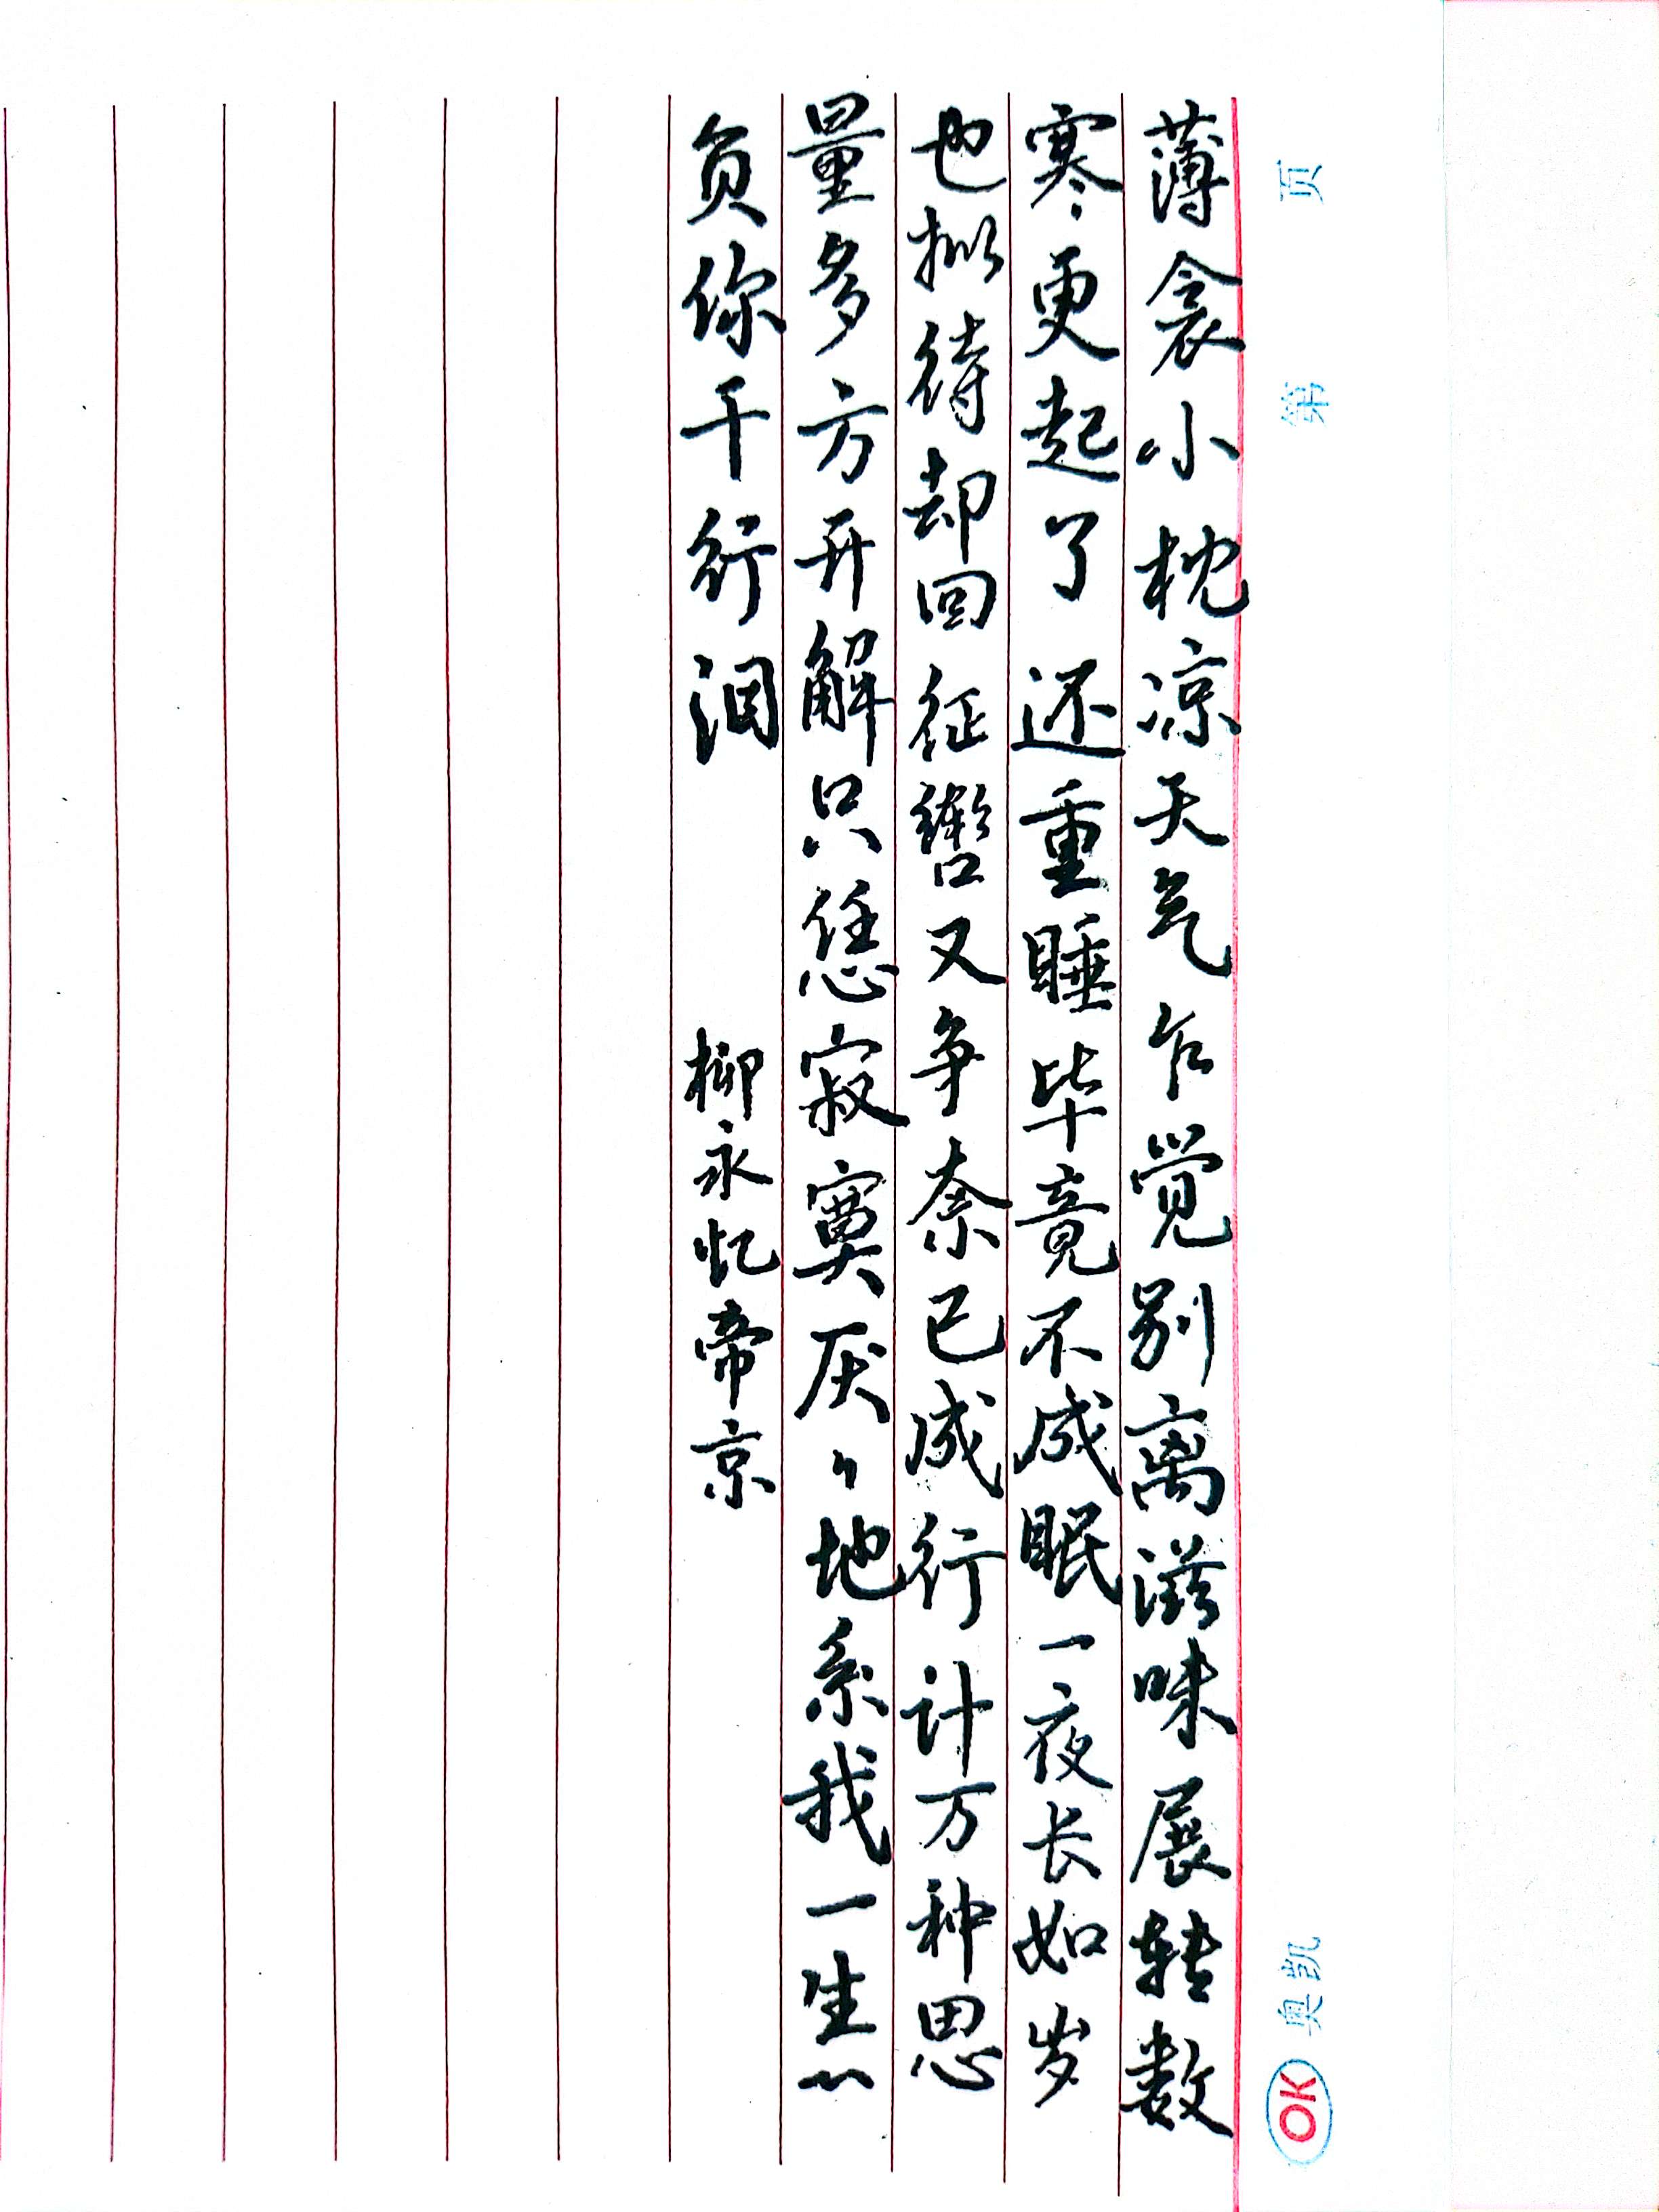 薄衾小枕凉天气乍觉别离滋味展转数
寒更起了还重睡毕竟不成眠一夜长如岁
也拟待却回征辔又争奈已成行计万种思
量多方开解只恁寂寞厌々地系我一生心
负你千行泪
柳永忆帝京
第 页
OK 奥凯